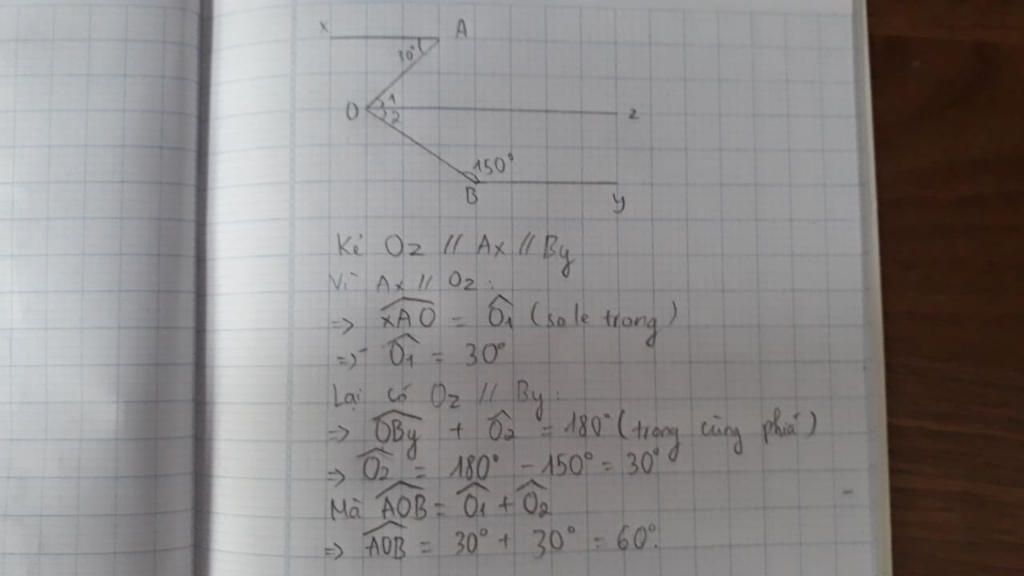 x A
30°
O 1 2 z
150°
B y
Kẻ Oz // Ax // By
Vì Ax // Oz :
=> xAO = O1 (so le trong)
=> O1 = 30°
Lại có Oz // By :
=> OBy + O2 = 180° (trong cùng phía)
=> O2 = 180° - 150° = 30°
Mà AOB = O1 + O2
=> AOB = 30° + 30° = 60°.